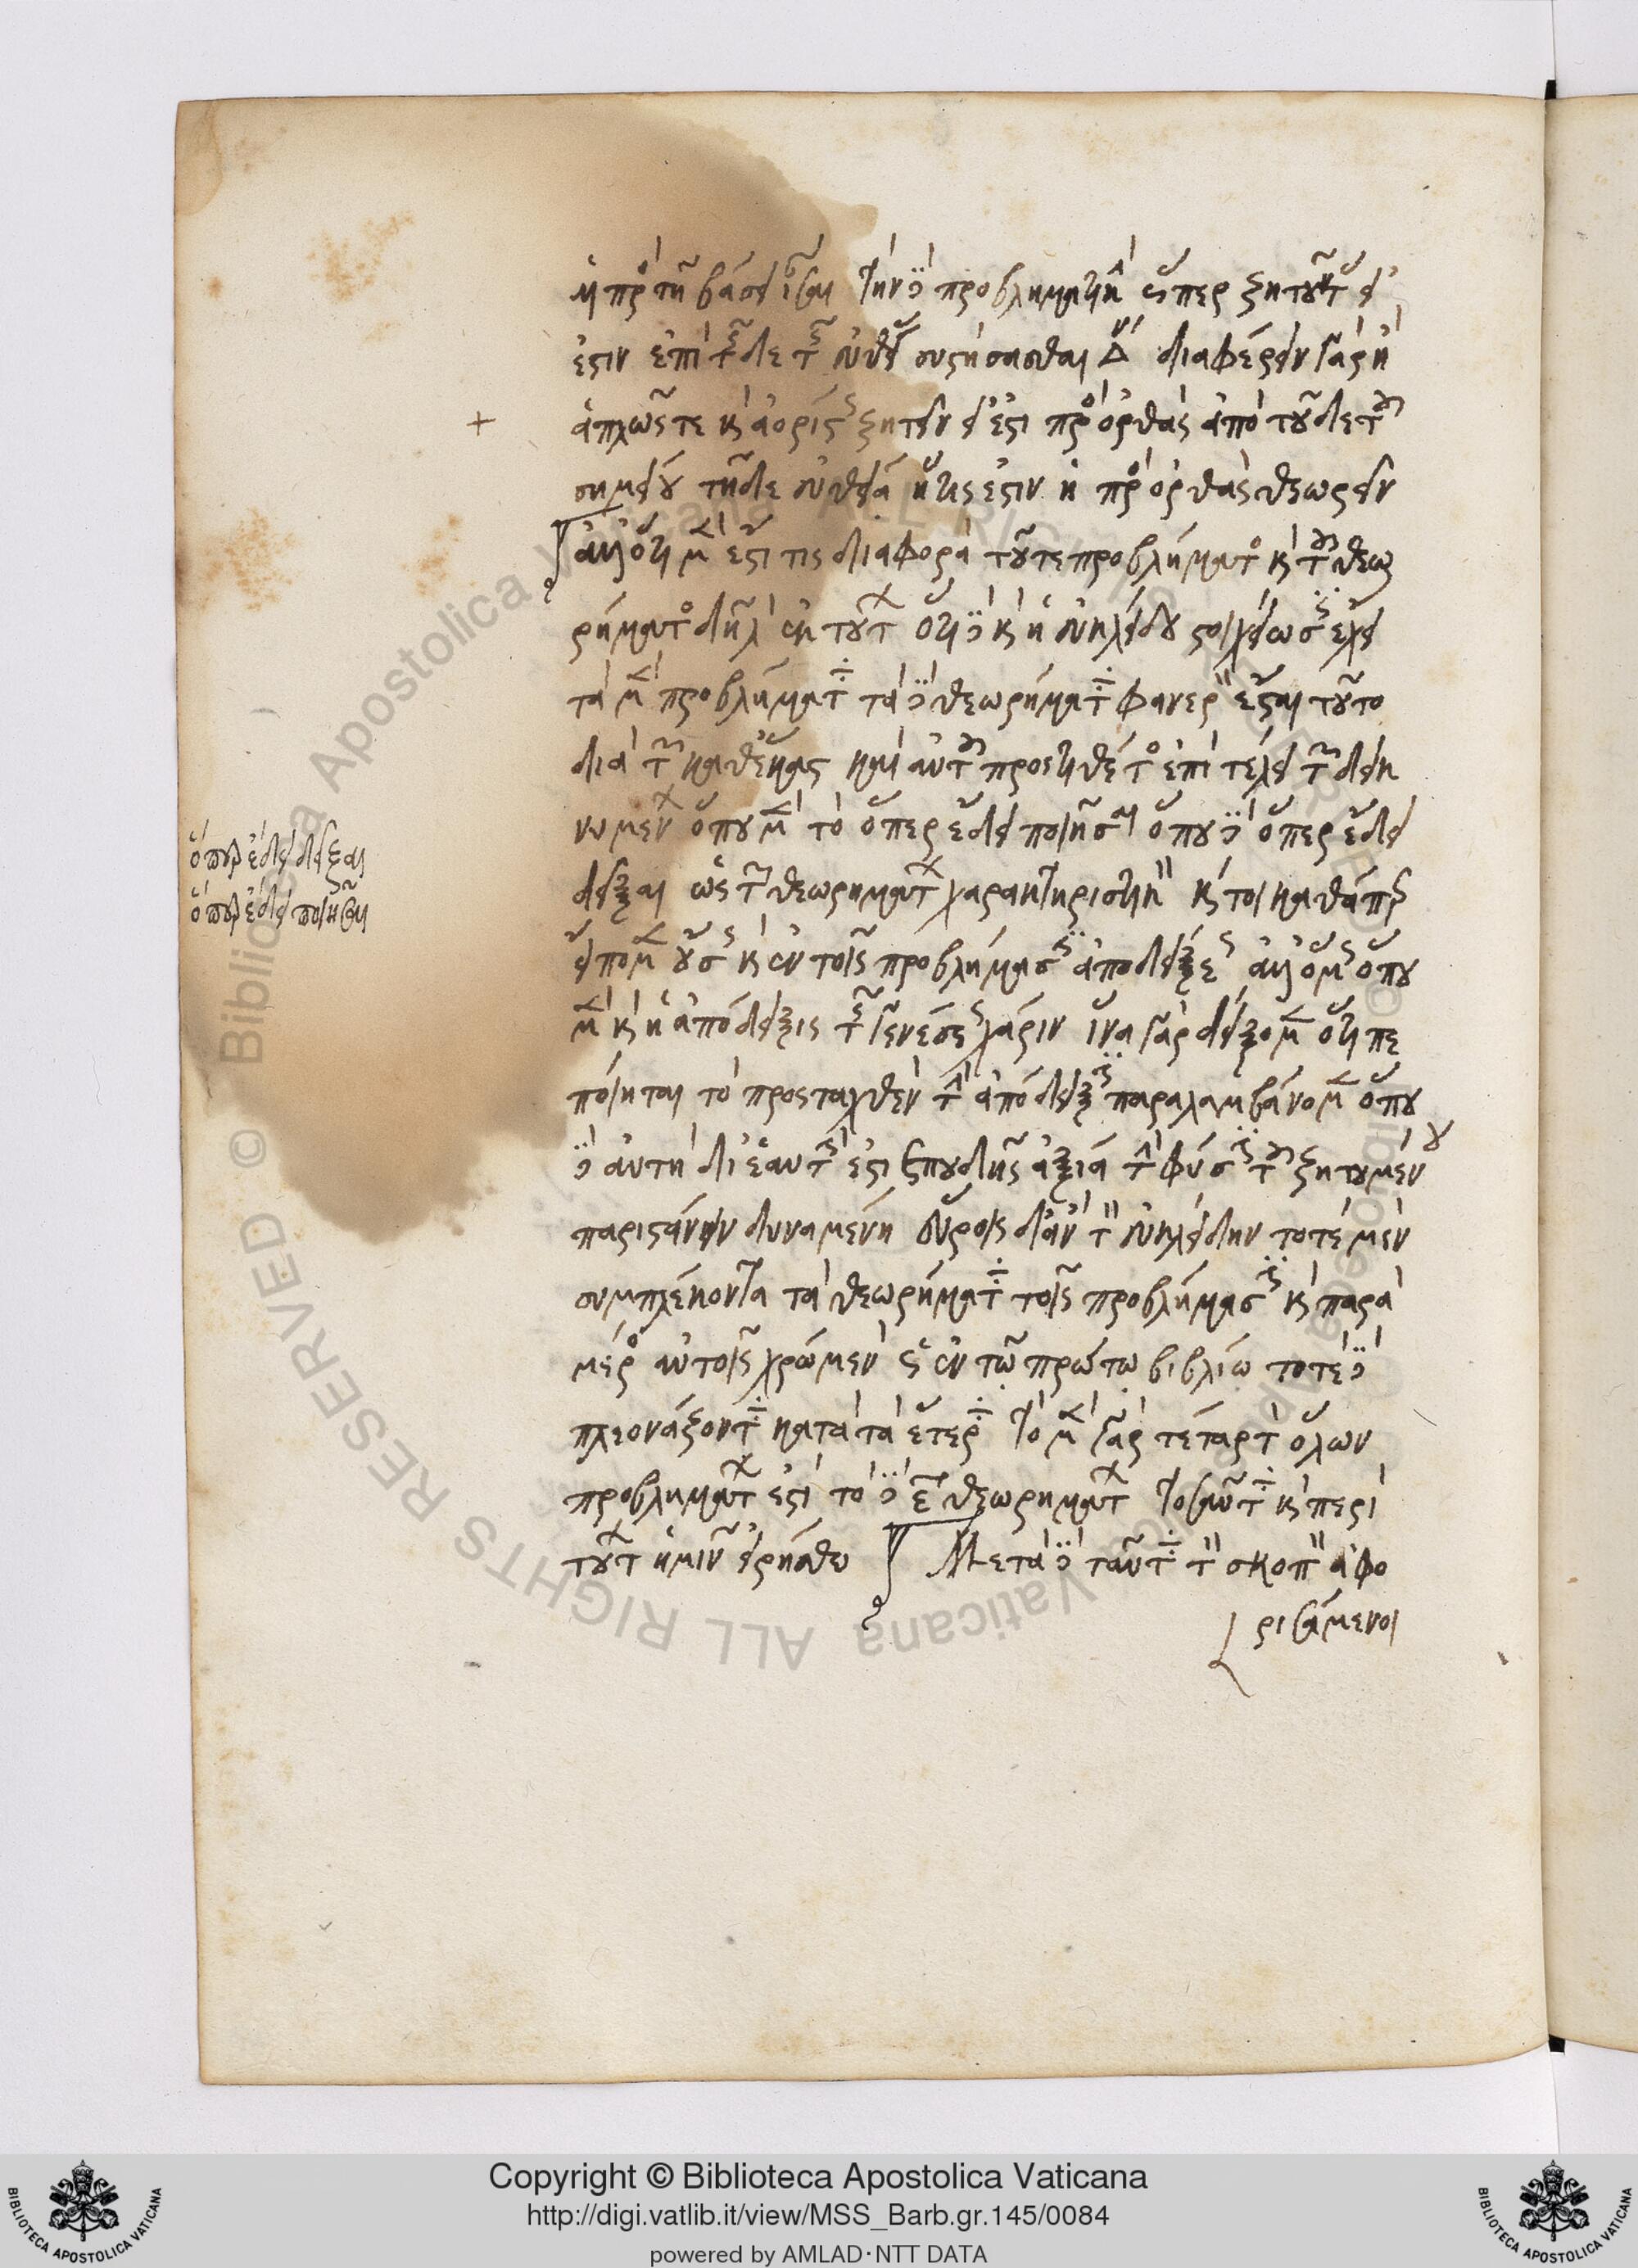 αἱ πρὸς τῇ βάσει ἴσαι τὴν δὲ προβληματικὴν ὥσπερ ζητοῦντος εἰ
ἔστιν ἐπὶ τῆσδε τῆς εὐθείας συστήσασθαι τρίγωνον διαφέρειν γὰρ ἢ
ἁπλῶς τε καὶ ἀορίστως ζητεῖν εἰ ἔστι πρὸς ὀρθὰς ἀπὸ τοῦδε τοῦ
σημείου τῇδε εὐθεῖα ἢ τίς ἐστιν ἡ πρὸς ὀρθὰς θεωρεῖν
ἀλλ' ὅτι μὲν ἔστι τις διαφορὰ τοῦ τε προβλήματος καὶ τοῦ θεω
ρήματος δῆλον ἐκ τούτων ὅτι δὲ καὶ ἡ Εὐκλείδου στοιχείωσις ἔχει
τὰ μὲν προβλήματα τὰ δὲ θεωρήματα φανερὸν ἔσται τοῦτο
διὰ τῶν καθέκαστα καὶ αὐτοῦ προστιθέντος ἐπὶ τέλει τῶν δεικ
νυμένων ὅπου μὲν τὸ ὅπερ ἔδει ποιῆσαι ὅπου δὲ ὅπερ ἔδει
δεῖξαι ὡς τῶν θεωρημάτων χαρακτηριστικὸν καίτοι καθάπερ
εἴπομεν οὔσης καὶ ἐν τοῖς προβλήμασιν ἀποδείξεως ἀλλ' ὅμως ὅπου
μὲν καὶ ἡ ἀπόδειξις τῆς γενέσεως χάριν ἵνα γὰρ δείξομεν ὅτι πε
ποίηται τὸ προσταχθὲν τὴν ἀπόδειξιν παραλαμβάνομεν ὅπου
δὲ αὐτὴ δι' ἑαυτήν ἐστι σπουδῆς ἀξία τὴν φύσιν τοῦ ζητουμένου
παριστάνειν δυναμένη εὕροις δ' ἂν τὸν Εὐκλείδην τοτὲ μὲν
συμπλέκοντα τὰ θεωρήματα τοῖς προβλήμασι καὶ παρὰ
μέρος αὐτοῖς χρώμενον ὡς ἐν τῷ πρώτῳ βιβλίῳ τοτὲ δὲ
πλεονάζοντα κατὰ τὰ ἕτερα τὸ μὲν γὰρ τέταρτον ὅλων
προβλημάτων ἐστὶ τὸ δὲ ε θεωρημάτων τοσαῦτα καὶ περὶ
τούτων ἡμῖν εἰρήσθω Μετὰ δὲ ταῦτα τὸν σκοπὸν ἀφο
ρισάμενοι
ὅπερ ἔδει δεῖξαι
ὅπερ ἔδει ποιῆσαι
Copyright © Biblioteca Apostolica Vaticana
http://digi.vatlib.it/view/MSS_Barb.gr.145/0084
powered by AMLAD·NTT DATA
BIBLIOTECA APOSTOLICA VATICANA
BIBLIOTECA APOSTOLICA VATICANA